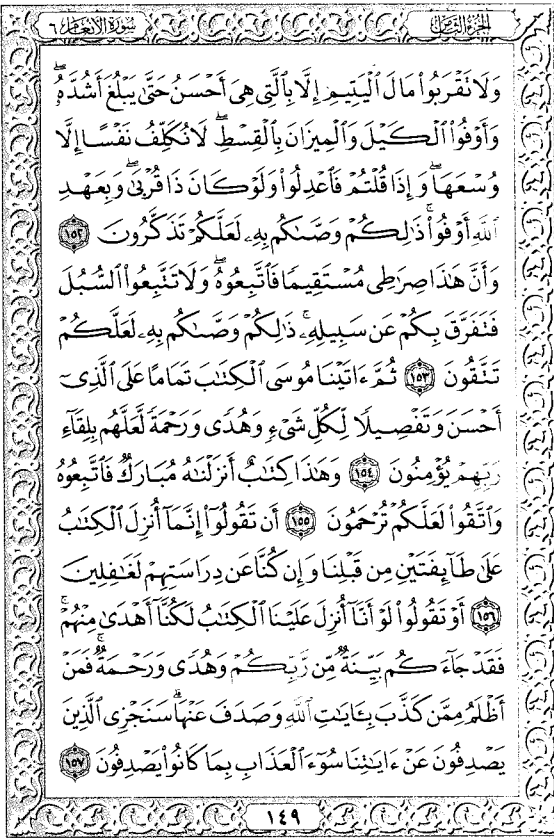 سورة الأنعام ٦
الجزء الثامن
وَلَا تَقْرَبُوا۟ مَالَ ٱلْيَتِيمِ إِلَّا بِٱلَّتِى هِىَ أَحْسَنُ حَتَّىٰ يَبْلُغَ أَشُدَّهُۥۖ
وَأَوْفُوا۟ ٱلْكَيْلَ وَٱلْمِيزَانَ بِٱلْقِسْطِۖ لَا نُكَلِّفُ نَفْسًا إِلَّا
وُسْعَهَاۖ وَإِذَا قُلْتُمْ فَٱعْدِلُوا۟ وَلَوْ كَانَ ذَا قُرْبَىٰۖ وَبِعَهْدِ
ٱللَّهِ أَوْفُوا۟ۚ ذَٰلِكُمْ وَصَّىٰكُم بِهِۦ لَعَلَّكُمْ تَذَكَّرُونَ ١٥٢
وَأَنَّ هَٰذَا صِرَٰطِى مُسْتَقِيمًا فَٱتَّبِعُوهُۖ وَلَا تَتَّبِعُوا۟ ٱلسُّبُلَ
فَتَفَرَّقَ بِكُمْ عَن سَبِيلِهِۦۚ ذَٰلِكُمْ وَصَّىٰكُم بِهِۦ لَعَلَّكُمْ
تَتَّقُونَ ١٥٣ ثُمَّ ءَاتَيْنَا مُوسَى ٱلْكِتَٰبَ تَمَامًا عَلَى ٱلَّذِىٓ
أَحْسَنَ وَتَفْصِيلًا لِّكُلِّ شَىْءٍ وَهُدًى وَرَحْمَةً لَّعَلَّهُم بِلِقَآءِ
رَبِّهِمْ يُؤْمِنُونَ ١٥٤ وَهَٰذَا كِتَٰبٌ أَنزَلْنَٰهُ مُبَارَكٌ فَٱتَّبِعُوهُ
وَٱتَّقُوا۟ لَعَلَّكُمْ تُرْحَمُونَ ١٥٥ أَن تَقُولُوٓا۟ إِنَّمَآ أُنزِلَ ٱلْكِتَٰبُ
عَلَىٰ طَآئِفَتَيْنِ مِن قَبْلِنَا وَإِن كُنَّا عَن دِرَاسَتِهِمْ لَغَٰفِلِينَ
١٥٦ أَوْ تَقُولُوا۟ لَوْ أَنَّآ أُنزِلَ عَلَيْنَا ٱلْكِتَٰبُ لَكُنَّآ أَهْدَىٰ مِنْهُمْۚ
فَقَدْ جَآءَكُم بَيِّنَةٌ مِّن رَّبِّكُمْ وَهُدًى وَرَحْمَةٌۚ فَمَنْ
أَظْلَمُ مِمَّن كَذَّبَ بِـَٔايَٰتِ ٱللَّهِ وَصَدَفَ عَنْهَاۗ سَنَجْزِى ٱلَّذِينَ
يَصْدِفُونَ عَنْ ءَايَٰتِنَا سُوٓءَ ٱلْعَذَابِ بِمَا كَانُوا۟ يَصْدِفُونَ ١٥٧
١٤٩